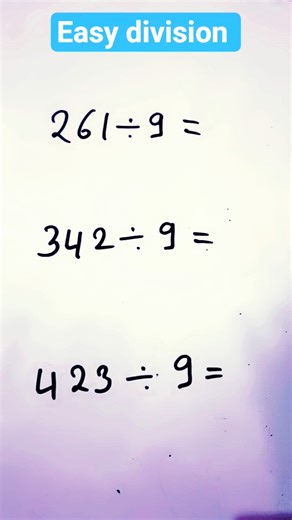 Easy division
261÷9=
342÷9=
423÷9=